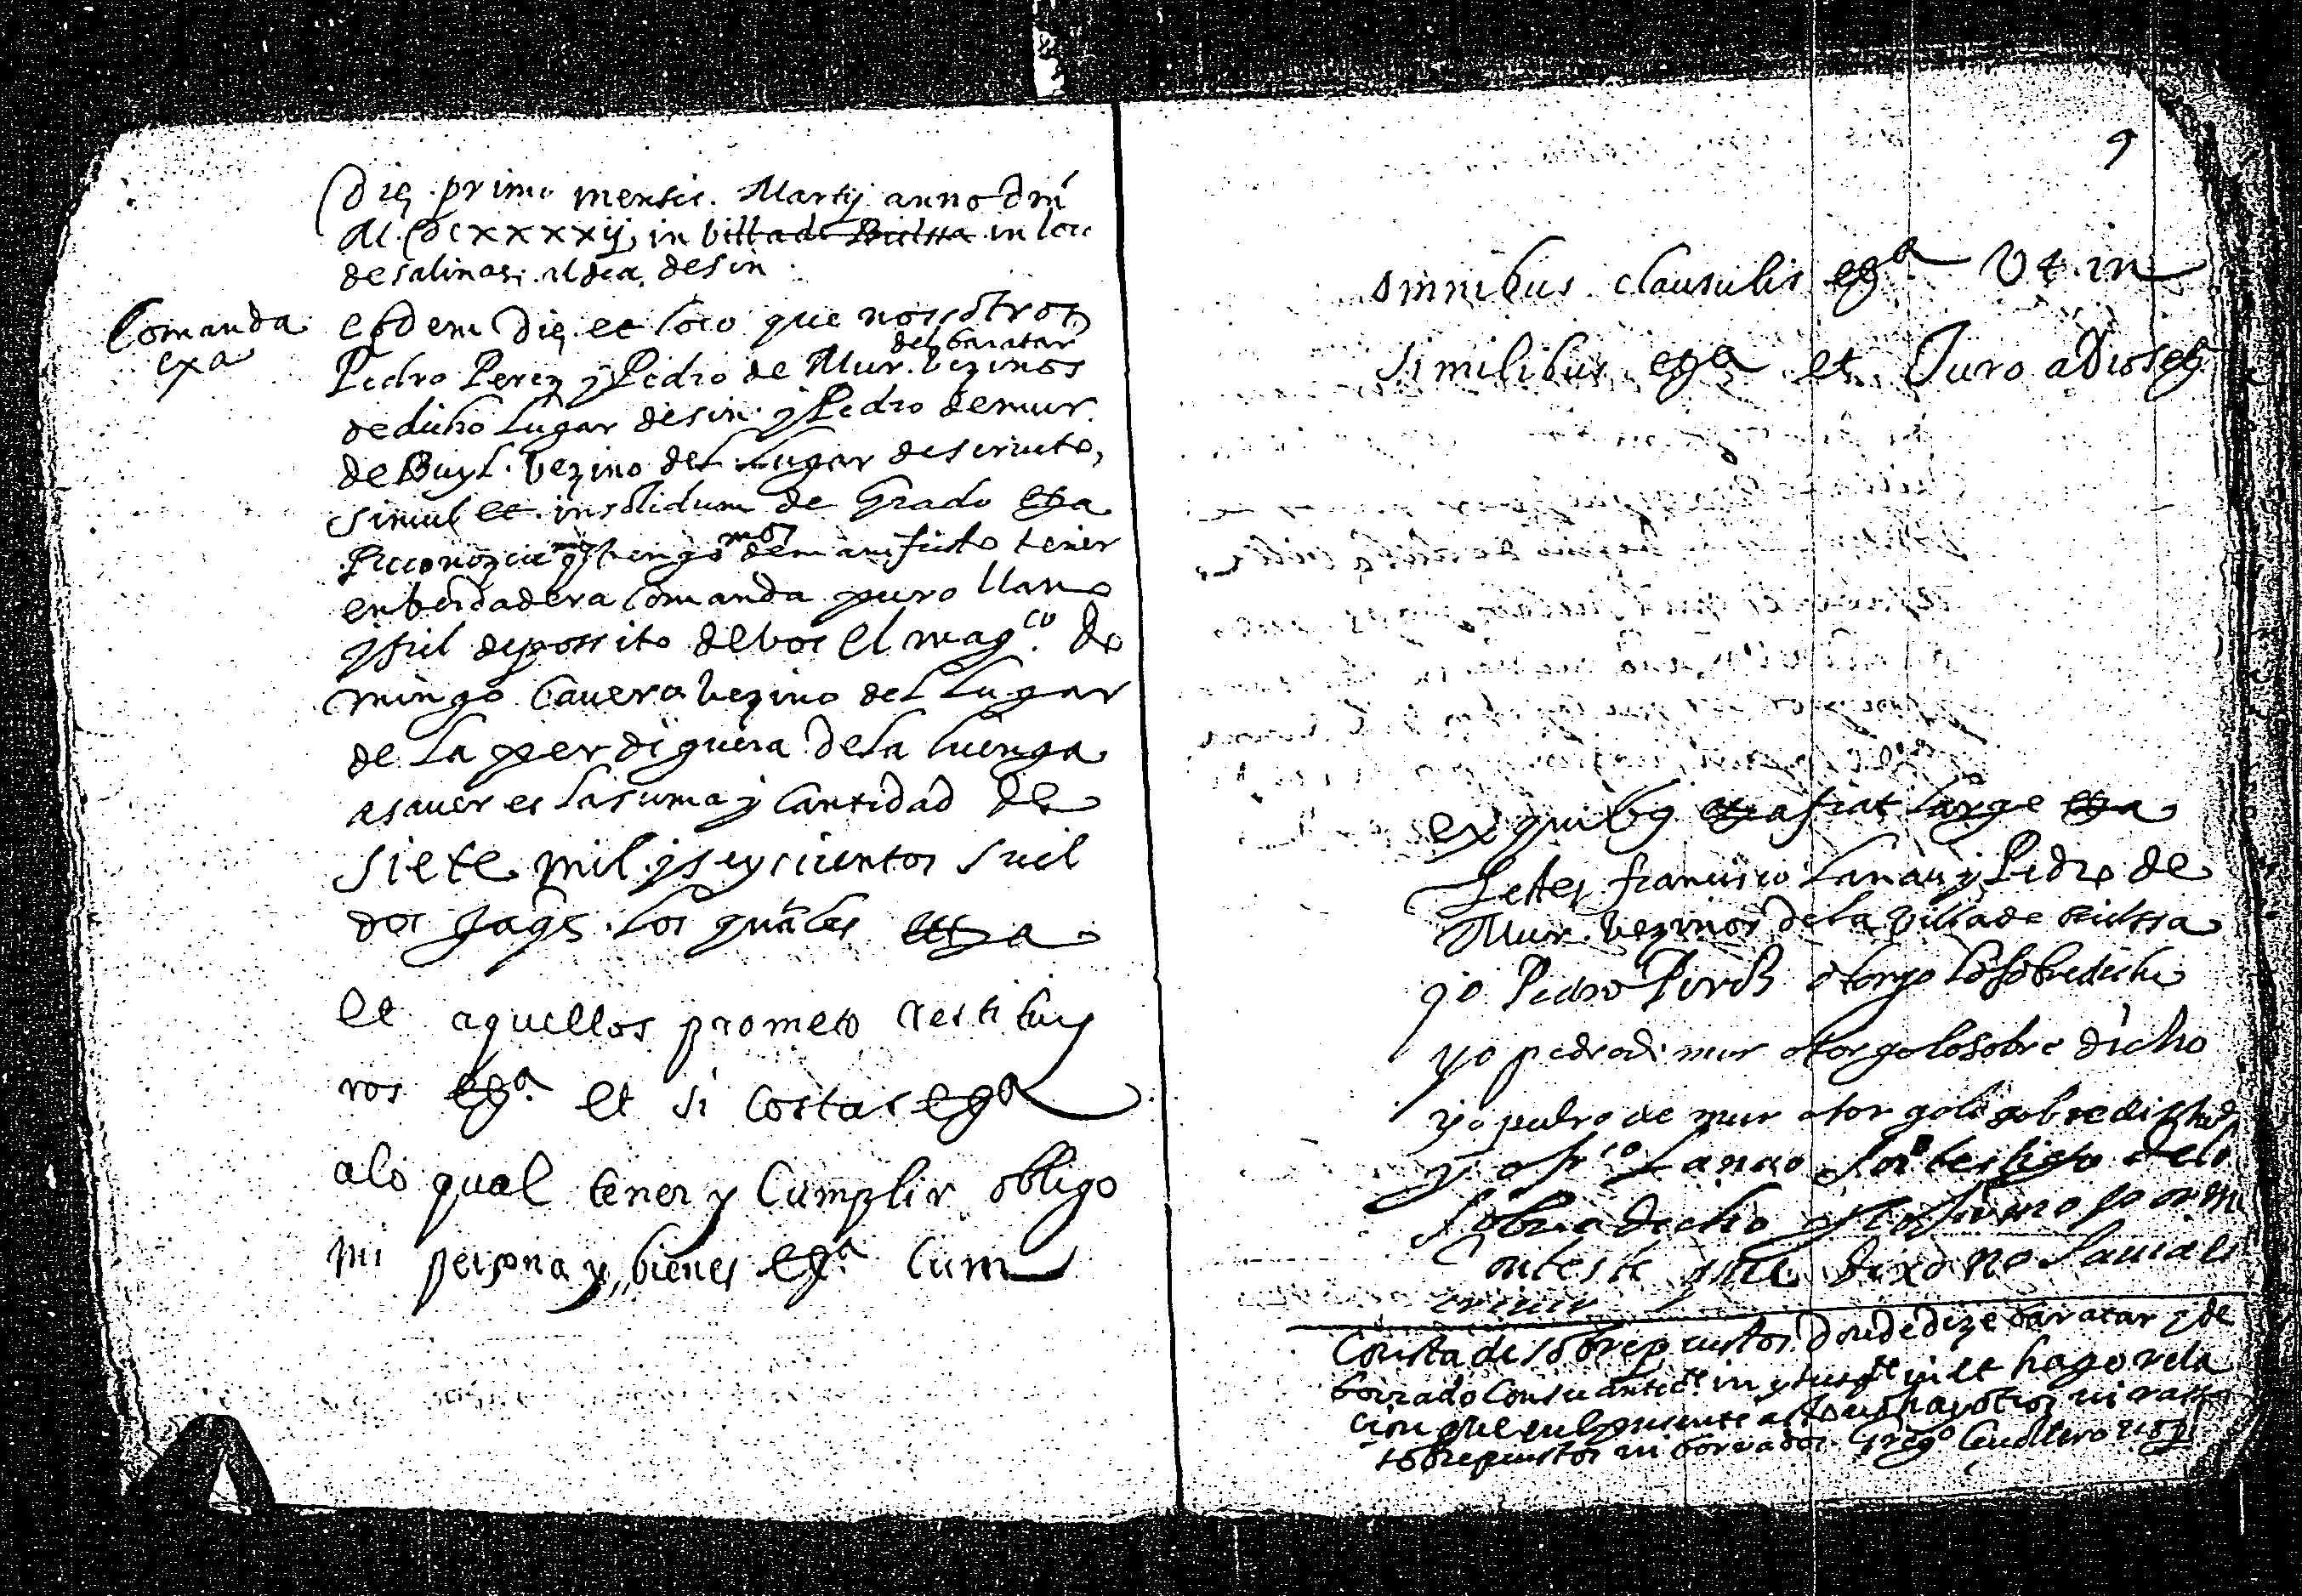 Die primo mensis Martij anno dni
M. DCxxxxij, in billa de Bielssa in loco
de salinas aldea de sin
Comanda
exa
eodem Die et loco que nossotros
del baratar
Pedro Perez y Pedro de Mur. bezinos
de dicho Lugar de sin y Pedro de mur
de Buyl. bezino del Lugar de serueto,
simul et insolidum de Grado etza
Reconozcu mos y tengo mos de manifiesto tener
en berdadera Comanda puro llano
y fiel depossito de bos el mag.co Do
mingo Cauero bezino del Lugar
de La perdiguera de la luenga
asauer es la suma y Cantidad de
siete mil y seyscientos suel
dos Jaqs. los quales etza
et aquellos prometo restituy
ros etz.a et si Costas etza
alo qual tener y Cumplir obligo
mi persona y bienes etz.a Cum
9
omnibus clausulis etz.a Ut in
similibus etza et Juro a Dios etz
ex quibus etza fiat large etza
Testes francisco Lanau y Pedro de
Mur. bezinos de la billa de bielssa
yo Pedro Perez otorgo lo sobredicho
yo pedro de mur otorgo lo sobre dicho
yo pedro de mur otorgo lo sobredicho
yo fr.co Lanao soi testigo delo
sobredicho y lo firmo por mi
conteste que dixo no sauia es
criuir
Consta de sobrepuestos donde dize baratar y de
borrado Consuantedte in y susgte villa et hago rela
cion que en el presente acto no hay otros ni rassos
sobrepuestos ni borrados. Greg.o Cauallero not